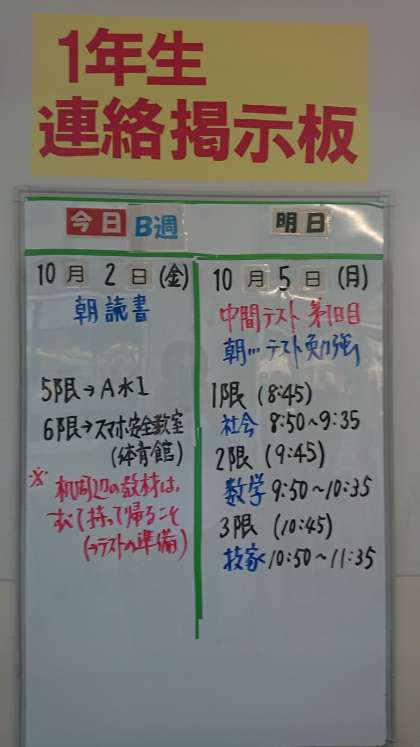 1年生
連絡掲示板
今日 B週
10月2日(金)
朝読書
5限→A水1
6限→スマホ安全教室
(体育館)
※机周辺の教材は、
すべて持って帰ること
(→テストの準備)
明日
10月5日(月)
中間テスト 第1日目
朝…テスト勉強
1限 (8:45)
社会 8:50〜9:35
2限 (9:45)
数学 9:50〜10:35
3限 (10:45)
技家 10:50〜11:35